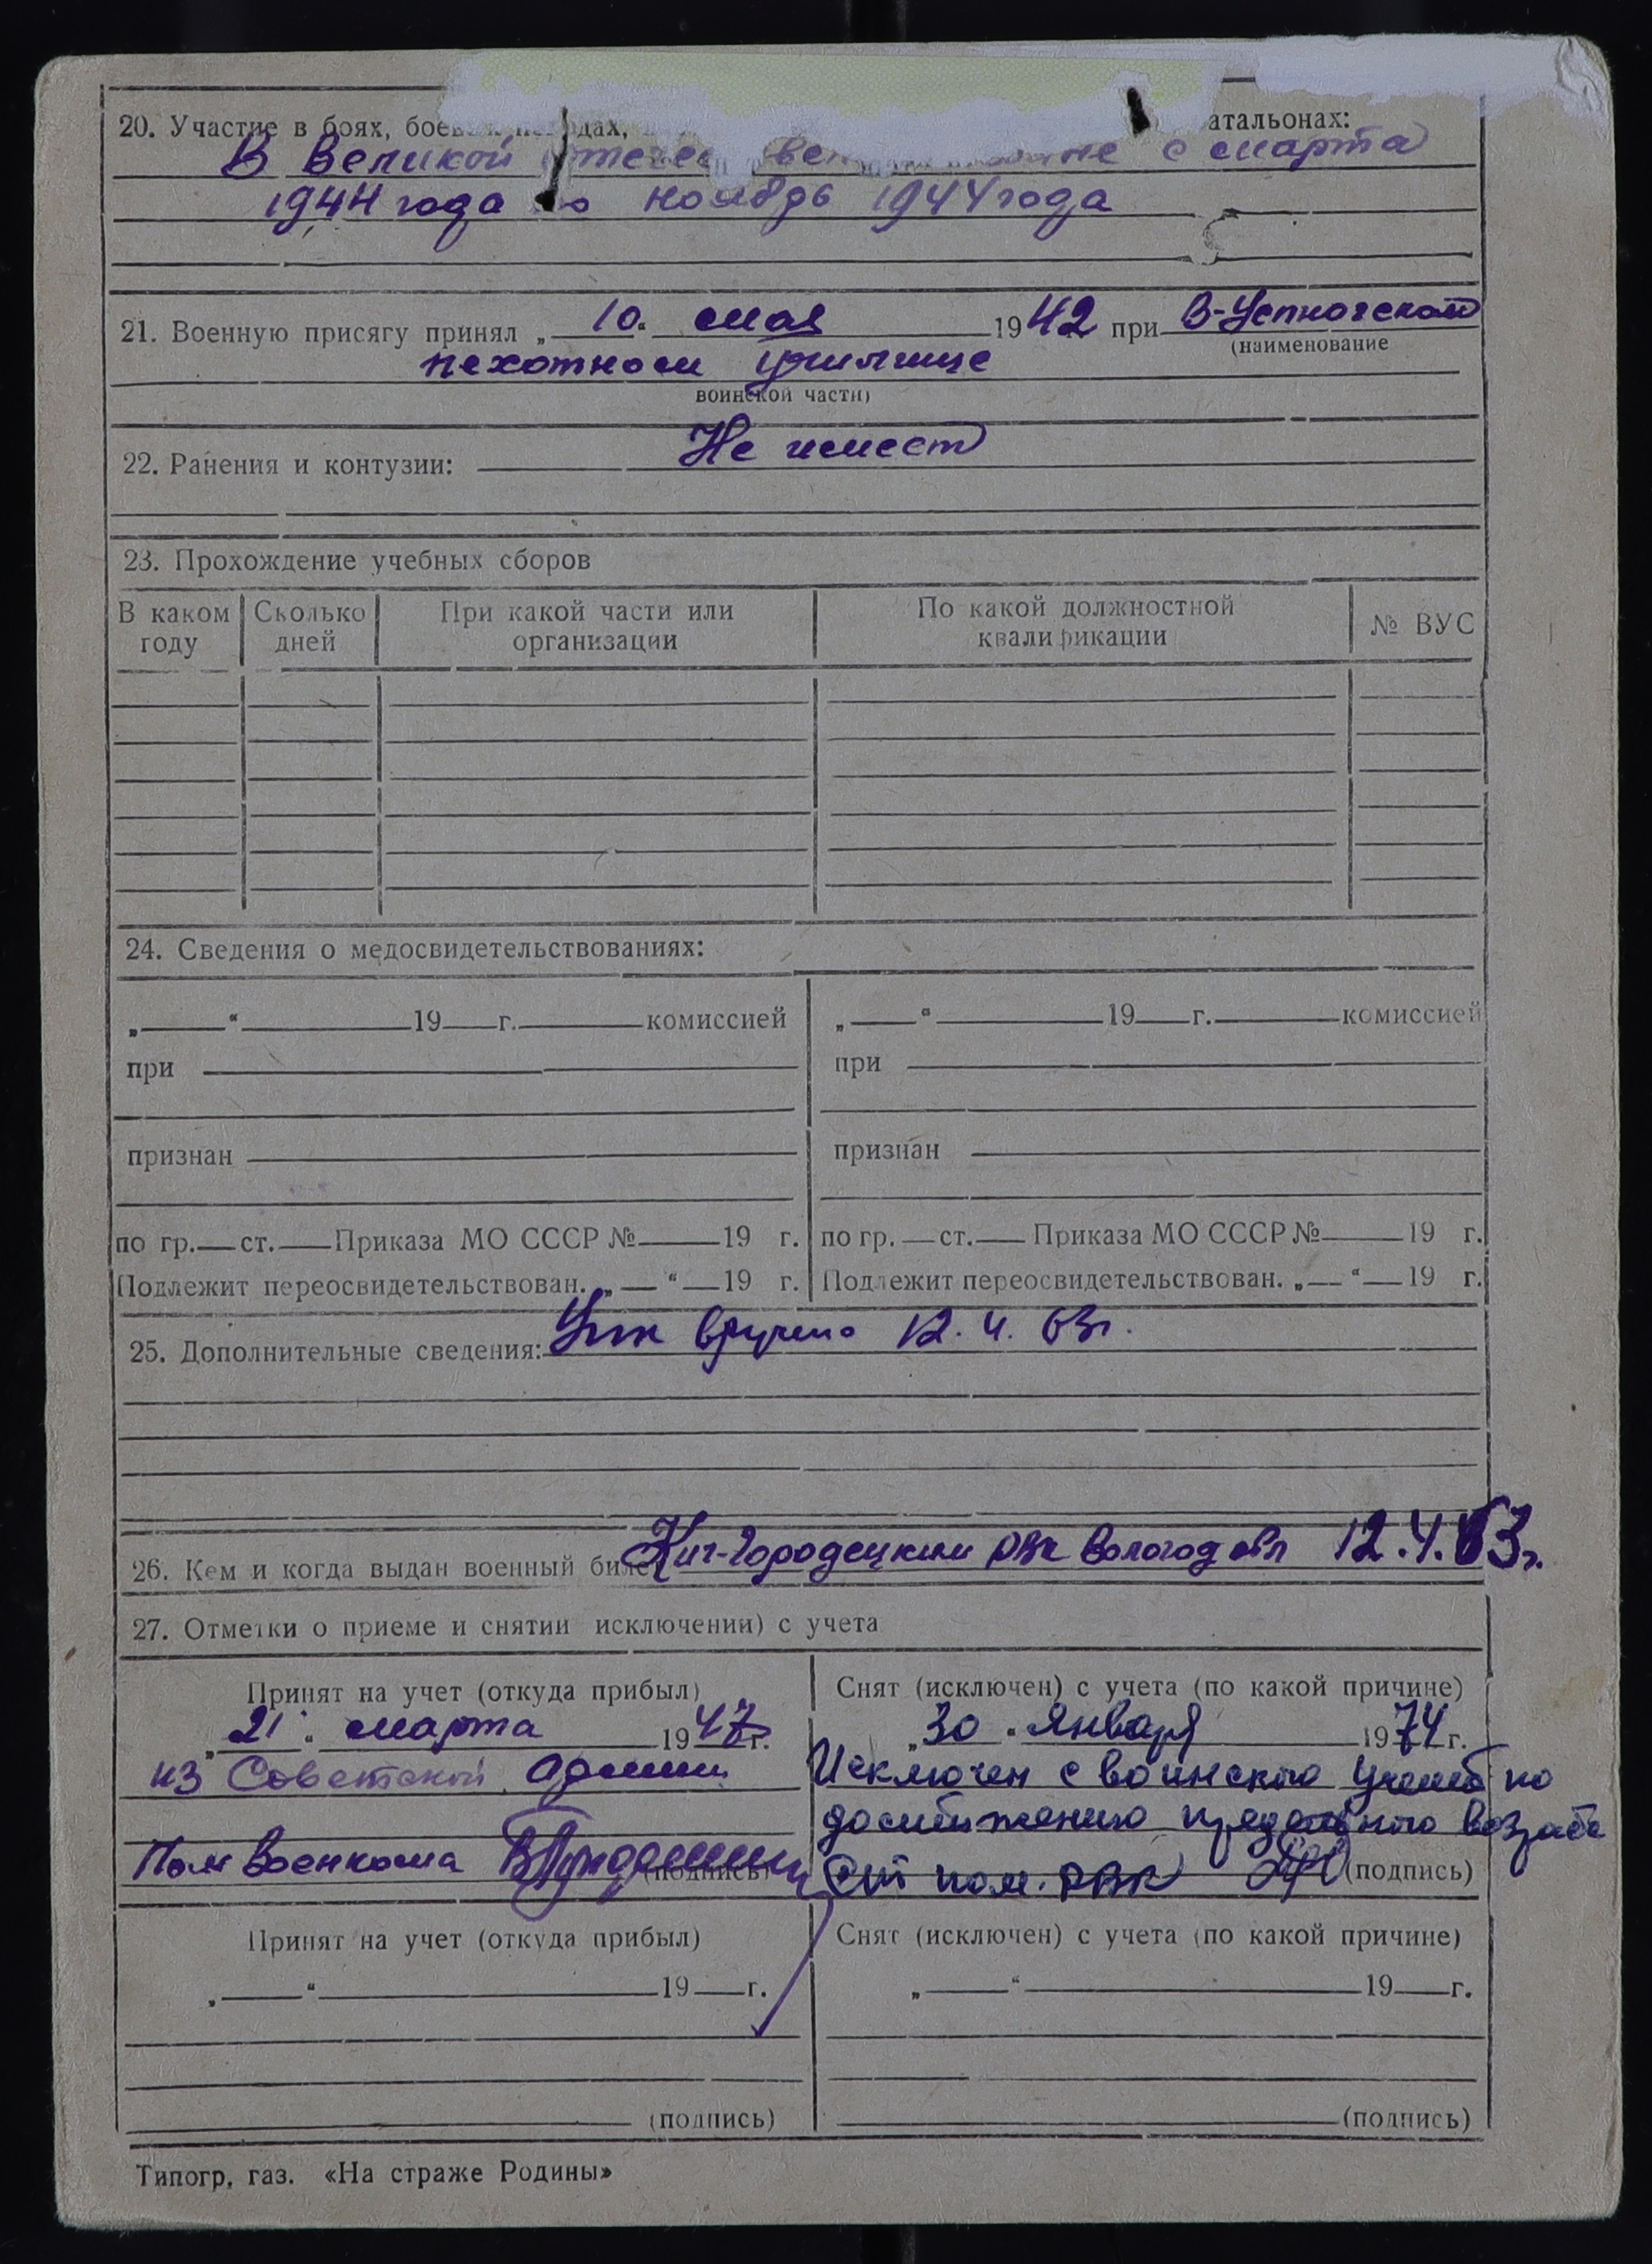 20. Участие в боях, боевых походах, атальонах:
В Великой Отечественной войне с марта
1944 года по ноябрь 1944 года
21. Военную присягу принял „10“ мая 1942 при В-Устюгском
(наименование
пехотном училище
воинской части)
22. Ранения и контузии: Не имеет
23. Прохождение учебных сборов
В каком году | Сколько дней | При какой части или организации | По какой должностной квалификации | № ВУС
24. Сведения о медосвидетельствованиях:
„ “ 19 г. комиссией | „ “ 19 г. комиссией
при | при
признан | признан
по гр. ст. Приказа МО СССР № 19 г. | по гр. ст. Приказа МО СССР № 19 г.
Подлежит переосвидетельствован. „ “ 19 г. | Подлежит переосвидетельствован. „ “ 19 г.
25. Дополнительные сведения: вручено 12.4.63г.
26. Кем и когда выдан военный билет Кич-Городецким РВК Вологод обл 12.4.63г.
27. Отметки о приеме и снятии исключении) с учета
Принят на учет (откуда прибыл) | Снят (исключен) с учета (по какой причине)
„21“ марта 1947г. | „30“ Января 1974г.
из Советской армии | Исключен с воинского учета по
достижению предельного возраста
Пом военкома (подпись) | Ст пом. РВК (подпись)
Принят на учет (откуда прибыл) | Снят (исключен) с учета (по какой причине)
„ “ 19 г. | „ “ 19 г.
(подпись) | (подпись)
Типогр. газ. «На страже Родины»